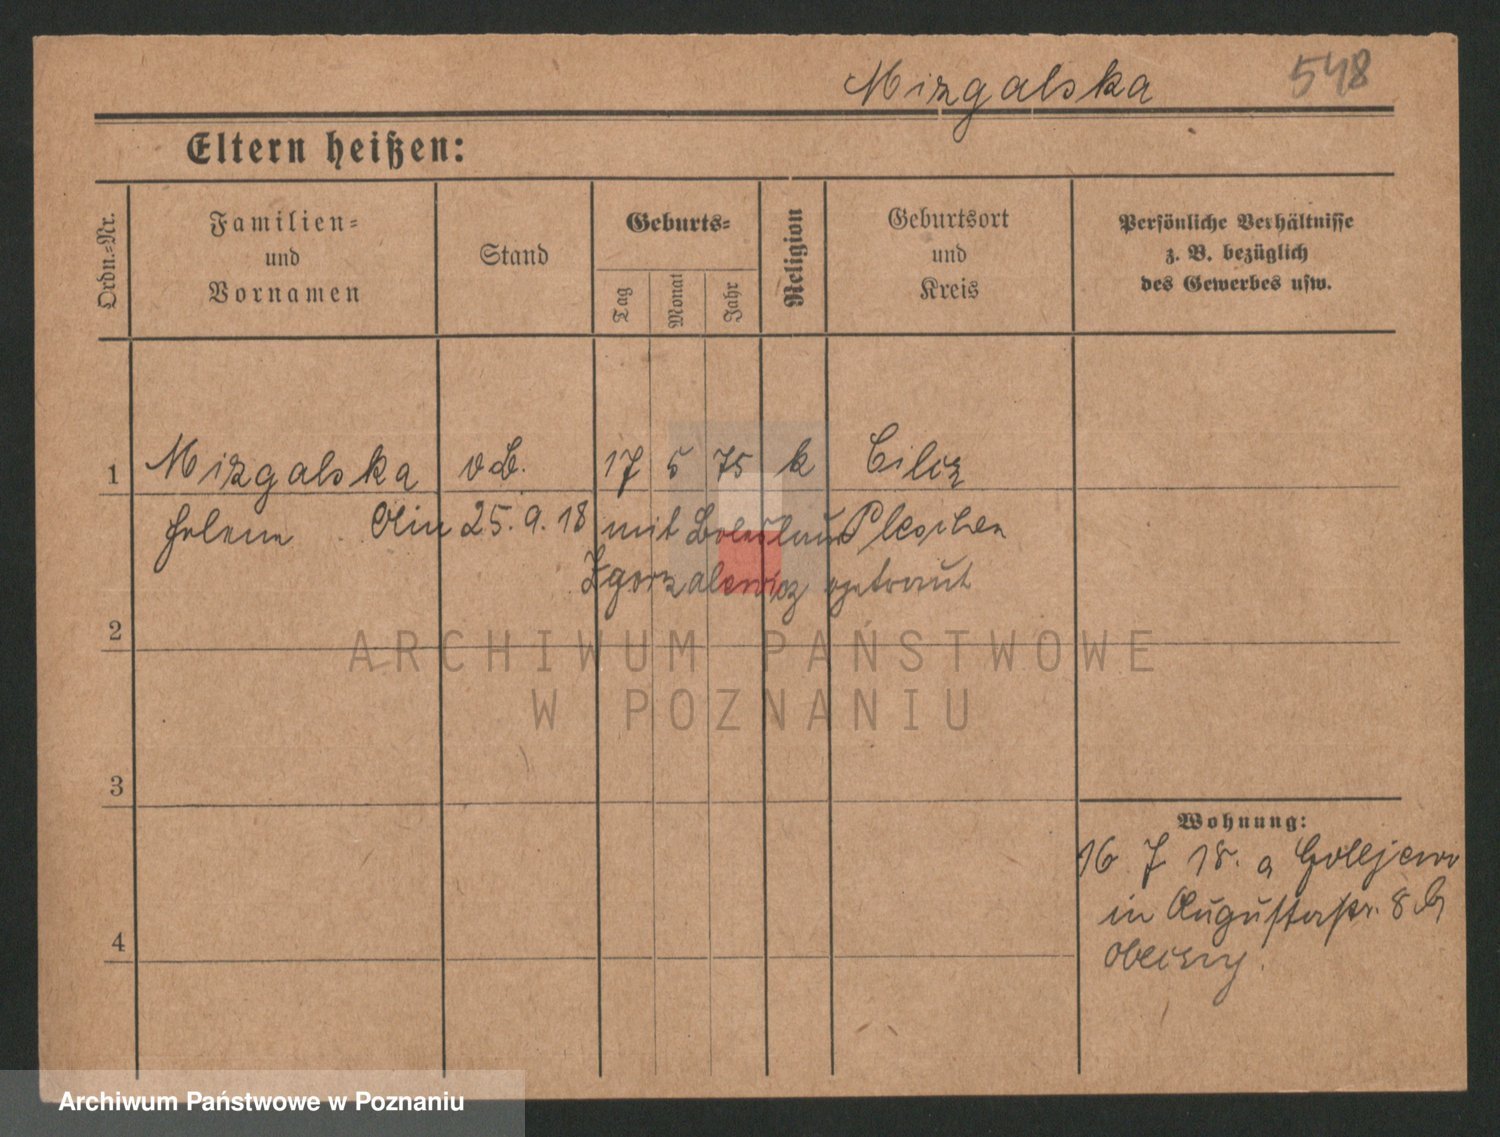 Mizgalska 548
Eltern heißen:
Ordn.-Nr.
Familien-
und
Vornamen
Stand
Geburts-
Tag
Monat
Jahr
Religion
Geburtsort
und
Kreis
Persönliche Verhältnisse
z. B. bezüglich
des Gewerbes usw.
1 Mizgalska 17 5 75 k
Helene Am 25. 9. 18 mit Boleslaus Pleschen
Zgorzalewicz getraut
2
ARCHIWUM PAŃSTWOWE
W POZNANIU
3
Wohnung:
16 7 18. a
in Augustastr. 8
4
Archiwum Państwowe w Poznaniu